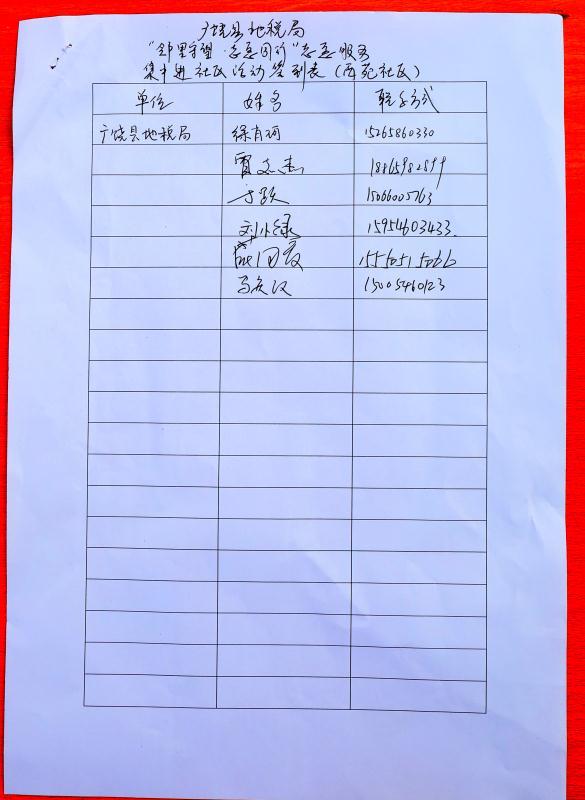 广饶县地税局
"邻里守望·志愿同行"志愿服务
集中进社区活动签到表（西苑社区）
单位 姓名 联系方式
广饶县地税局 徐肖珂 15265860330
贾志杰 18865982899
15066005763
刘小绿 15954603433.
15550515066
马庆汉 15005460123